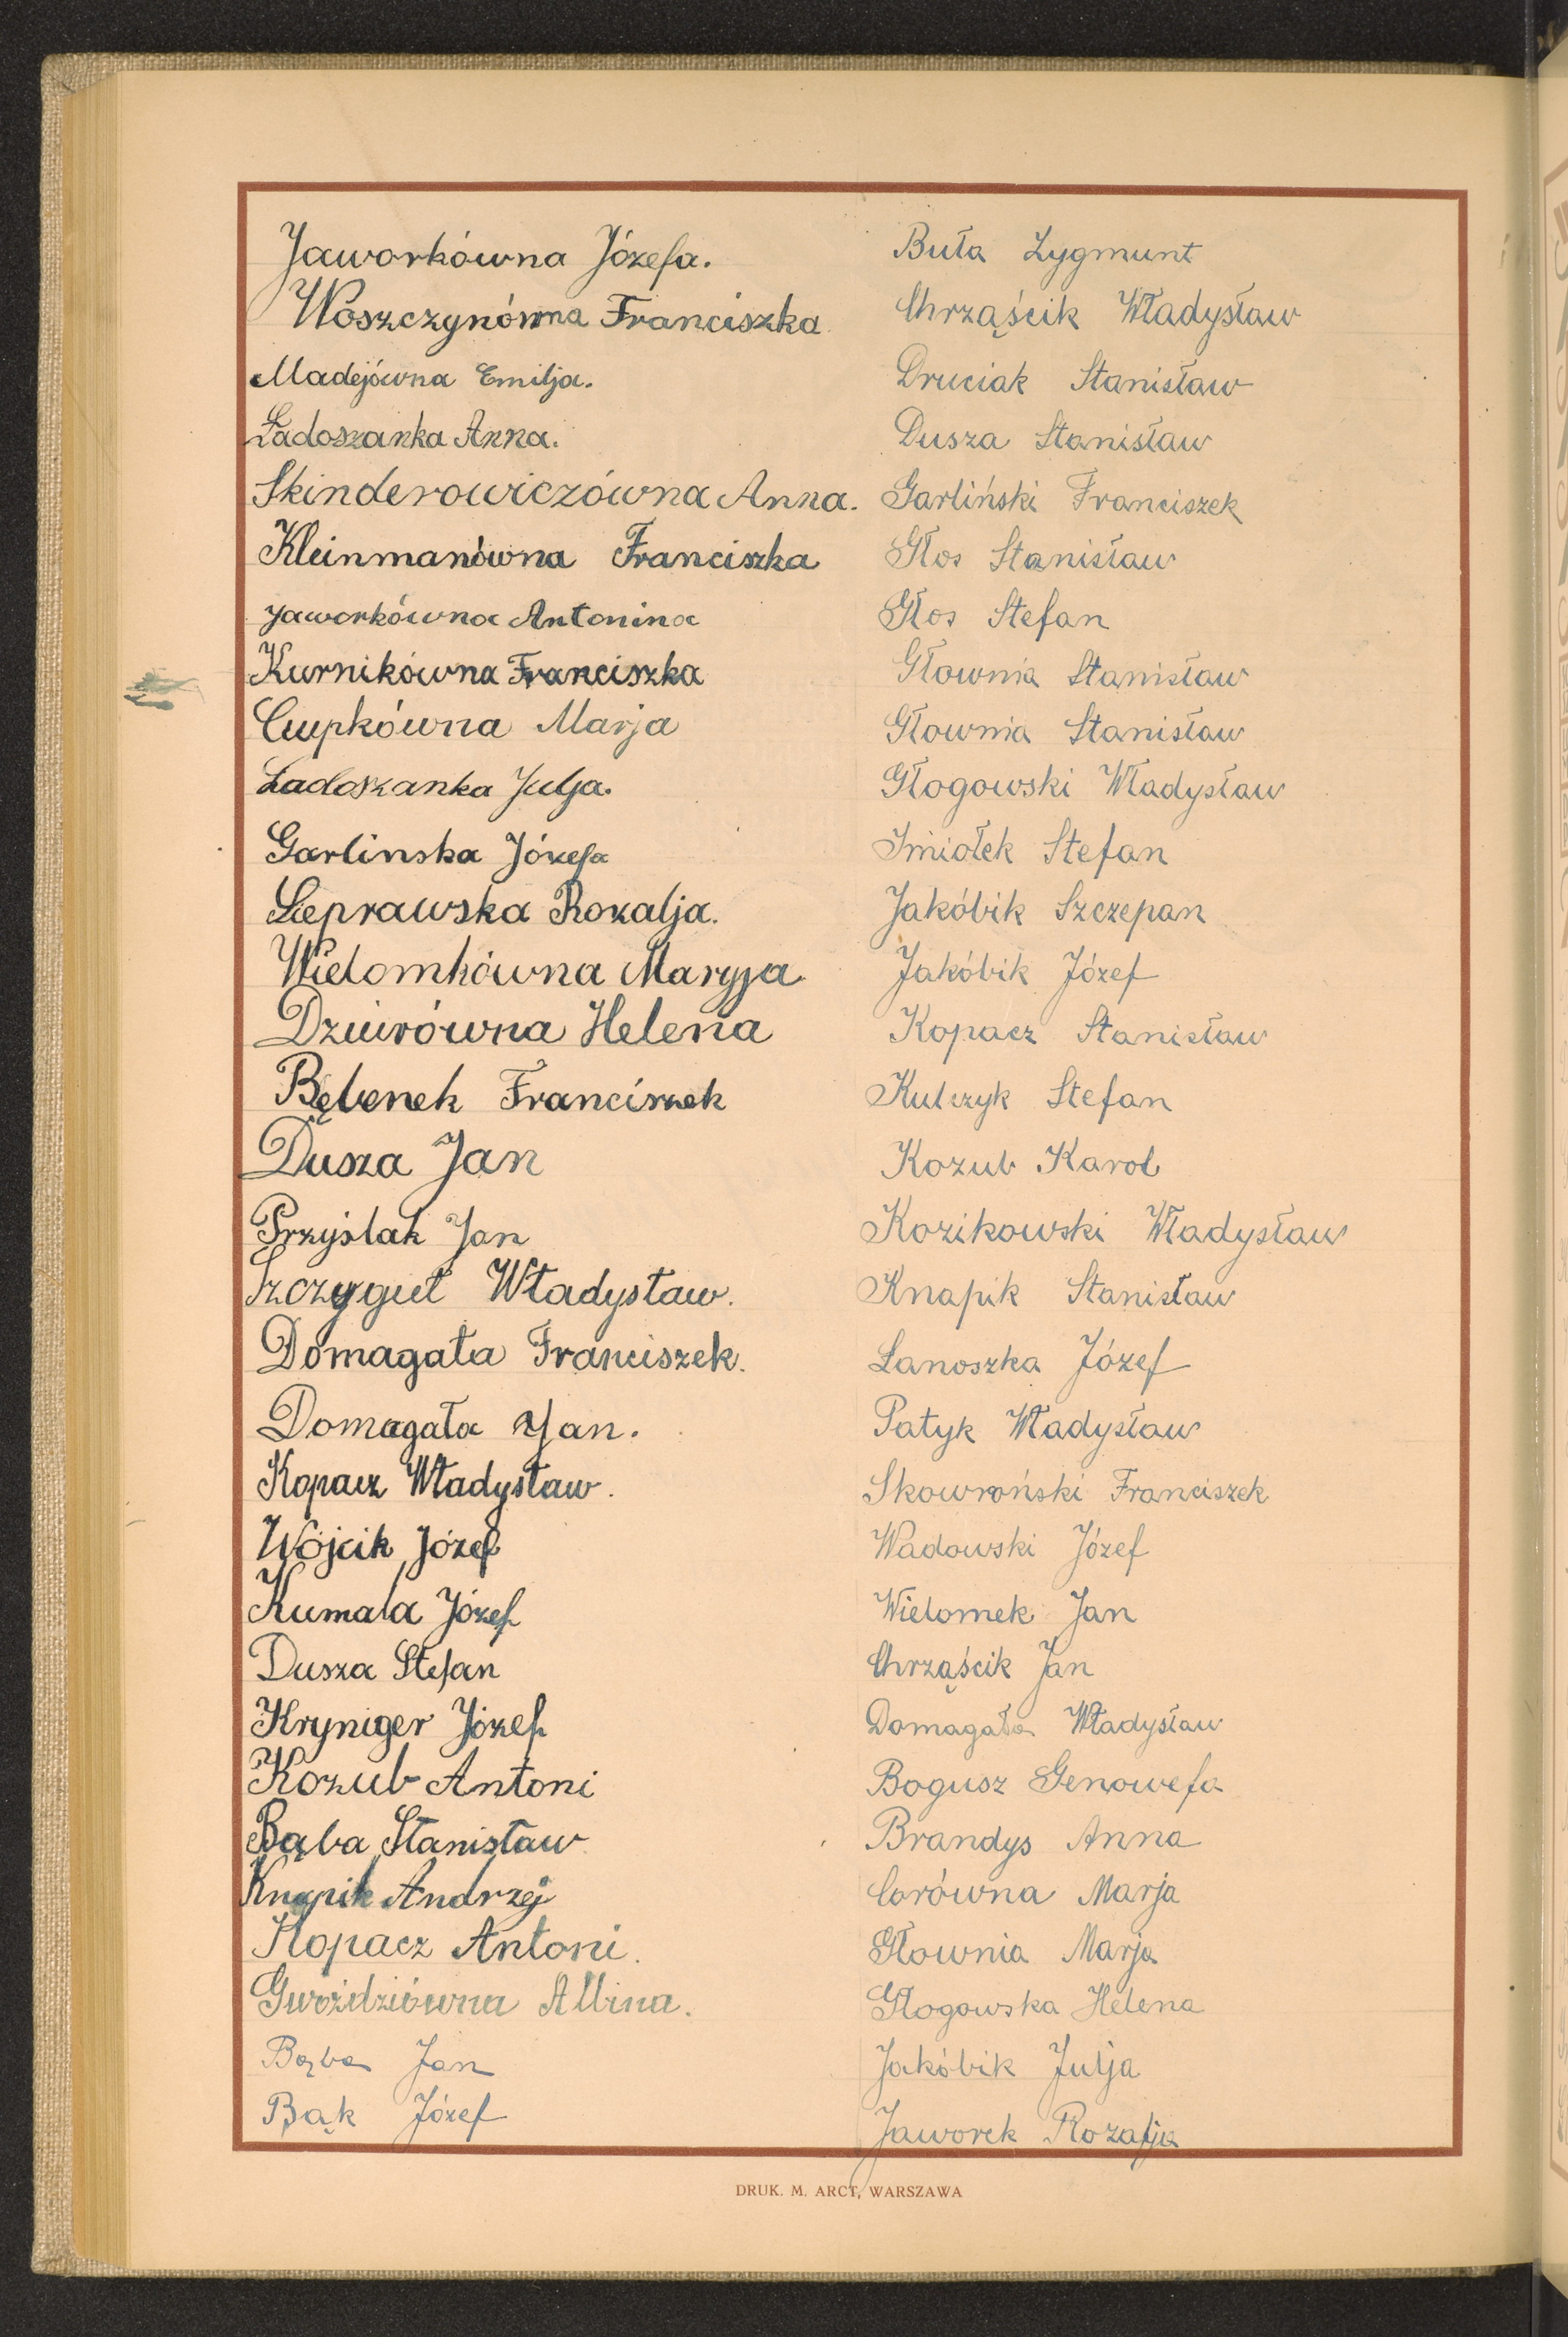 Jaworkówna Józefa.
Woszczynówna Franciszka
Madejówna Emilja.
Ładoszanka Anna.
Skinderowiczówna Anna.
Kleinmanówna Franciszka
Jaworkówna Antonina
Kurnikówna Franciszka
Cupkówna Marja
Ładoszanka Julja.
Garlinska Józefa
Łeprawska Rozalja.
Wielomkówna Maryja
Dziurówna Helena
Bębenek Franciszek
Dusza Jan
Przyślak Jan
Szczygieł Władysław.
Domagała Franciszek.
Domagała Jan.
Kopacz Władysław.
Wójcik Józef
Kumala Józef
Dusza Stefan
Kryniger Józef
Kozub Antoni
Bąba Stanisław
Knapik Andrzej
Kopacz Antoni.
Gwoździówna Albina.
Bąba Jan
Bąk Józef
Buła Zygmunt
Chrząścik Władysław
Druciak Stanisław
Dusza Stanisław
Garliński Franciszek
Głos Stanisław
Głos Stefan
Głownia Stanisław
Głownia Stanisław
Głogowski Władysław
Imiołek Stefan
Jakóbik Szczepan
Jakóbik Józef
Kopacz Stanisław
Kulczyk Stefan
Kozub Karol
Kozikowski Władysław
Knapik Stanisław
Łanoszka Józef
Patyk Władysław
Skowroński Franciszek
Wadowski Józef
Wielomek Jan
Chrząścik Jan
Domagała Władysław
Bogusz Genowefa
Brandys Anna
Corówna Marja
Głownia Marja
Głogowska Helena
Jakóbik Julja
Jaworek Rozalja
DRUK. M. ARCT, WARSZAWA